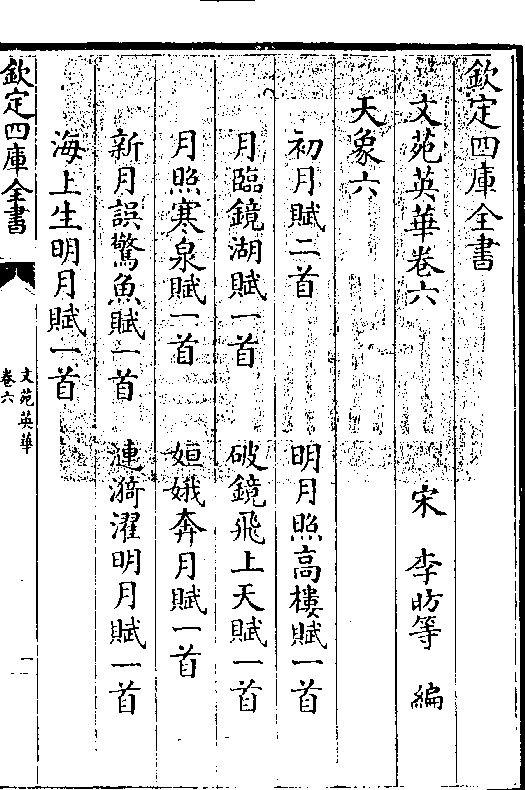 欽定四庫全書
文苑英華卷六
宋 李昉等 編
天象六
初月賦二首 明月照高樓賦一首
月臨鏡湖賦一首 破鏡飛上天賦一首
月照寒泉賦一首 姮娥奔月賦一首
新月誤驚魚賦一首 漣漪濯明月賦一首
海上生明月賦一首
欽定四庫全書
文苑英華
卷六
一